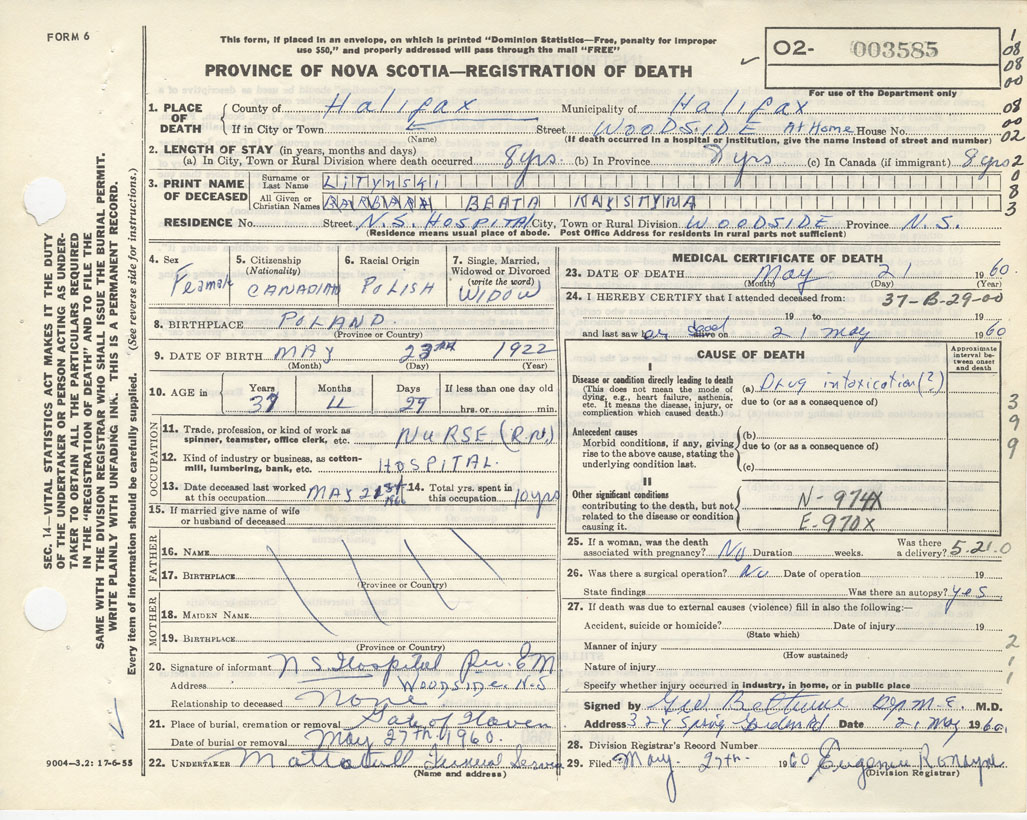 FORM 6
This form, if placed in an envelope, on which is printed "Dominion Statistics—Free, penalty for improper
use $50," and properly addressed will pass through the mail "FREE"
PROVINCE OF NOVA SCOTIA—REGISTRATION OF DEATH
02- 003585
For use of the Department only
1
08
08
00
08
00
02
2
0
8
3
1. PLACE OF DEATH County of Halifax Municipality of Halifax
If in City or Town Street WOODSIDE At Home House No.
(Name) (If death occurred in a hospital or institution, give the name instead of street and number)
2. LENGTH OF STAY (in years, months and days)
(a) In City, Town or Rural Division where death occurred 8 yrs. (b) In Province 8 yrs (c) In Canada (if immigrant) 8 yrs
3. PRINT NAME OF DECEASED Surname or Last Name LITYNSKI
All Given or Christian Names BARBARA BEATA
RESIDENCE No. Street N.S. HOSPITAL City, Town or Rural Division WOODSIDE Province N.S.
(Residence means usual place of abode. Post Office Address for residents in rural parts not sufficient)
4. Sex
5. Citizenship (Nationality) CANADIAN
6. Racial Origin POLISH
7. Single, Married, Widowed or Divorced (write the word) WIDOW
8. BIRTHPLACE POLAND
(Province or Country)
9. DATE OF BIRTH MAY 23 1922
(Month) (Day) (Year)
10. AGE in Years Months Days If less than one day old
37 29 hrs. or min.
OCCUPATION
11. Trade, profession, or kind of work as spinner, teamster, office clerk, etc. NURSE (R.N.)
12. Kind of industry or business, as cotton-mill, lumbering, bank, etc. HOSPITAL.
13. Date deceased last worked at this occupation MAY 21st 14. Total yrs. spent in this occupation 10 yrs
15. If married give name of wife or husband of deceased
FATHER
16. NAME
17. BIRTHPLACE
(Province or Country)
MOTHER
18. MAIDEN NAME
19. BIRTHPLACE
(Province or Country)
20. Signature of informant N S. Hospital
Address WOODSIDE. N.S
Relationship to deceased None
21. Place of burial, cremation or removal Gate of Heaven
Date of burial or removal May 27th. 1960.
22. UNDERTAKER Mattatall Funeral Service
(Name and address)
MEDICAL CERTIFICATE OF DEATH
23. DATE OF DEATH May 21 1960.
(Month) (Day) (Year)
24. I HEREBY CERTIFY that I attended deceased from: 37-B-29-00
19 to 19
and last saw dead alive on 21 May 1960
CAUSE OF DEATH
Approximate interval between onset and death
I
Disease or condition directly leading to death
(This does not mean the mode of dying, e.g., heart failure, asthenia, etc. It means the disease, injury, or complication which caused death.)
(a) Drug intoxication (?)
due to (or as a consequence of)
Antecedent causes
Morbid conditions, if any, giving rise to the above cause, stating the underlying condition last.
(b)
due to (or as a consequence of)
(c)
3
9
9
II
Other significant conditions
contributing to the death, but not related to the disease or condition causing it.
N-974X
E-970X
25. If a woman, was the death associated with pregnancy? No Duration weeks. Was there a delivery? 5.21.0
26. Was there a surgical operation? No Date of operation 19
State findings Was there an autopsy? yes
27. If death was due to external causes (violence) fill in also the following:—
Accident, suicide or homicide? Date of injury 19
(State which)
Manner of injury 2
(How sustained)
Nature of injury 1
Specify whether injury occurred in industry, in home, or in public place 1
Signed by M.D.
Address 324 Spring Garden Rd Date 21 May 1960.
28. Division Registrar's Record Number
29. Filed May 27th 1960
(Division Registrar)
SEC. 14—VITAL STATISTICS ACT MAKES IT THE DUTY
OF THE UNDERTAKER OR PERSON ACTING AS UNDER-
TAKER TO OBTAIN ALL THE PARTICULARS REQUIRED
IN THE "REGISTRATION OF DEATH" AND TO FILE THE
SAME WITH THE DIVISION REGISTRAR WHO SHALL ISSUE THE BURIAL PERMIT.
WRITE PLAINLY WITH UNFADING INK. THIS IS A PERMANENT RECORD.
Every item of information should be carefully supplied. (See reverse side for instructions.)
9004—3.2: 17-6-55